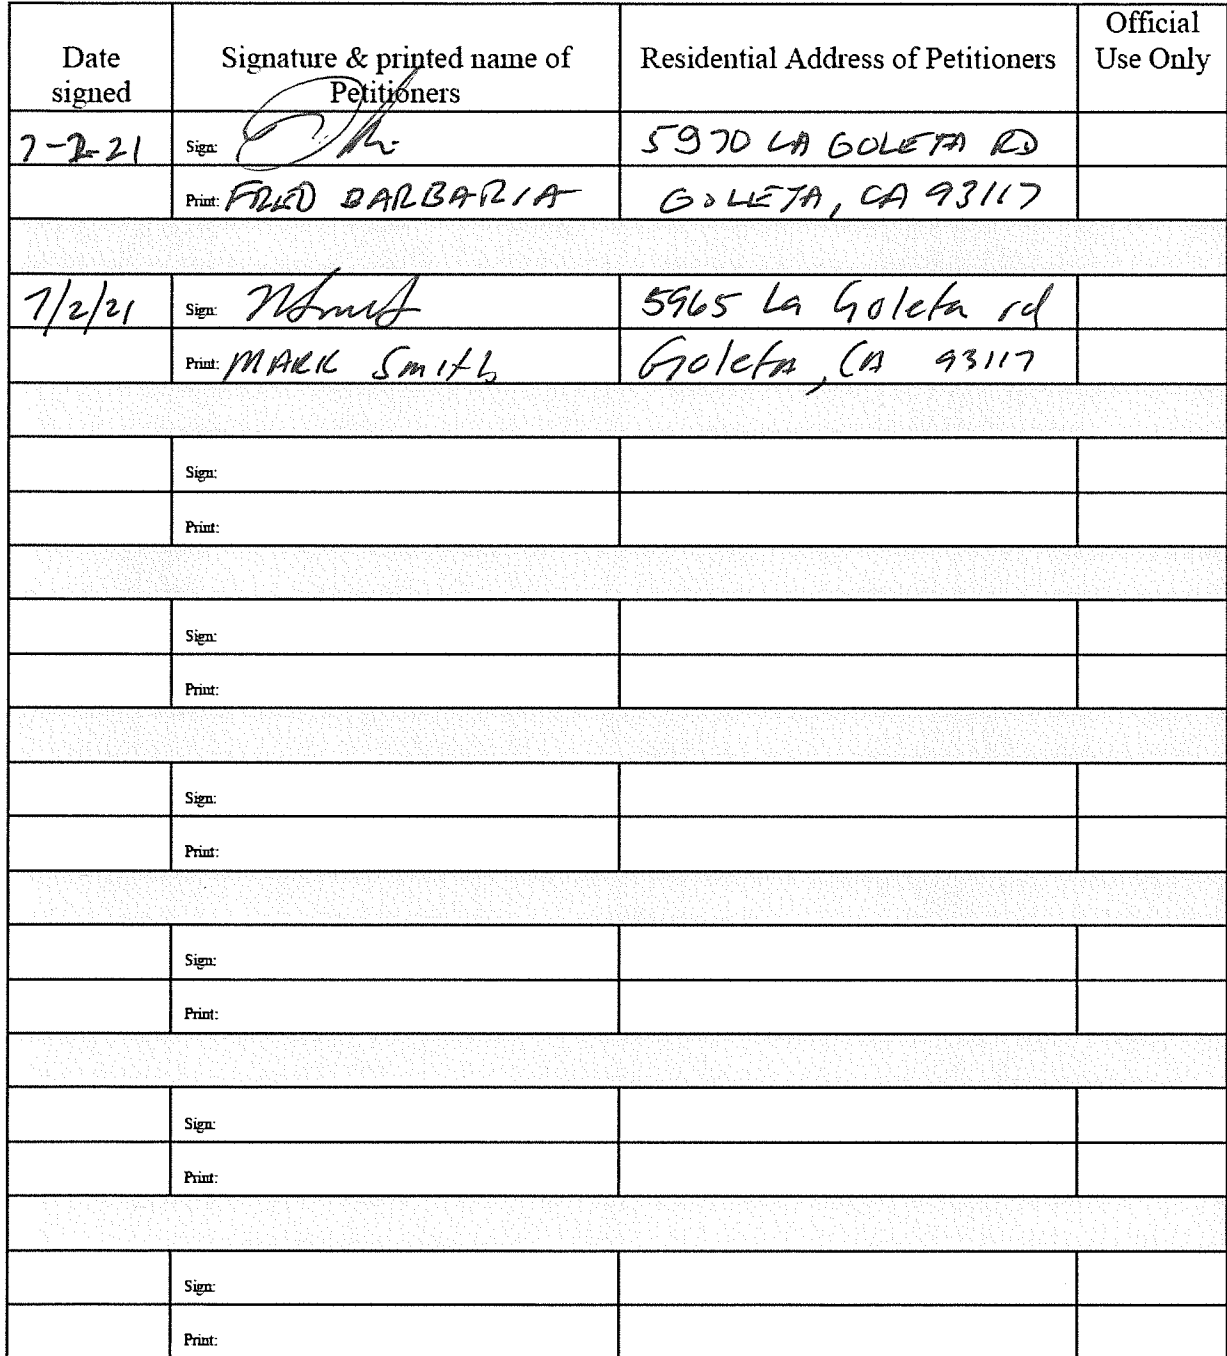 Date signed
Signature & printed name of Petitioners
Residential Address of Petitioners
Official Use Only
7-2-21 Sign: 5970 LA GOLETA RD
Print: FRED BARBARIA GOLETA, CA 93117
7/2/21 Sign: 5965 La Goleta rd
Print: MARK Smith Goleta, CA 93117
Sign:
Print:
Sign:
Print:
Sign:
Print:
Sign:
Print:
Sign:
Print:
Sign:
Print: